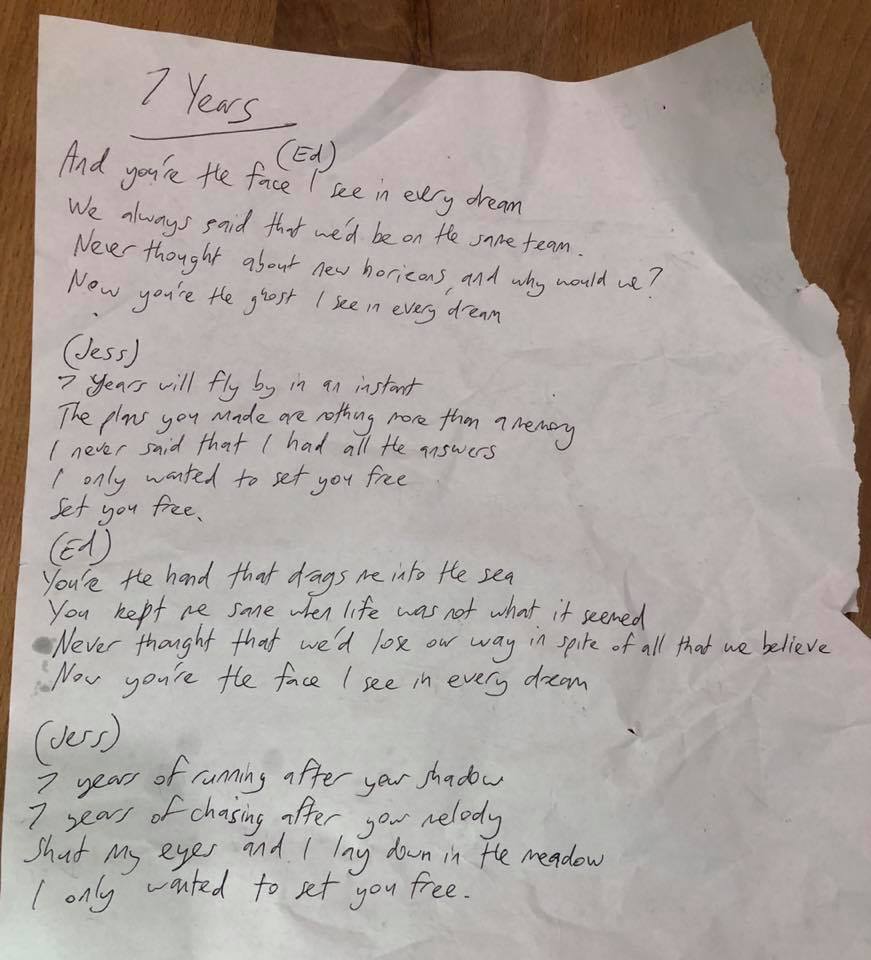 7 Years
(Ed)
And you're the face I see in every dream
We always said that we'd be on the same team.
Never thought about new horizons, and why would we?
Now you're the ghost I see in every dream
(Jess)
7 years will fly by in an instant
The plans you made are nothing more than a memory
I never said that I had all the answers
I only wanted to set you free
Set you free.
(Ed)
You're the hand that drags me into the sea
You kept me sane when life was not what it seemed
Never thought that we'd lose our way in spite of all that we believe
Now you're the face I see in every dream
(Jess)
7 years of running after your shadow
7 years of chasing after your melody
Shut my eyes and I lay down in the meadow
I only wanted to set you free.